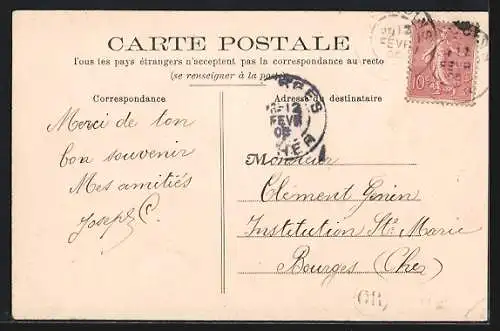 CARTE POSTALE
Tous les pays étrangers n'acceptent pas la correspondance au recto
(se renseigner à la poste)
Correspondance
Adresse du destinataire
Merci de ton
bon souvenir
Mes amitiés
Joseph C.
Monsieur
Clément Génin
Institution Ste Marie
Bourges (Cher)
12
FEVR
12
FEVR
10